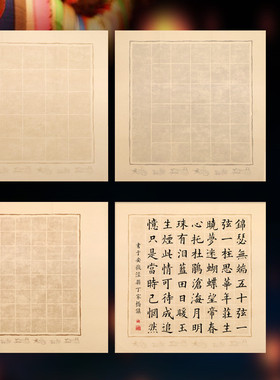 錦瑟無端五十弦一
弦一柱思華年莊生
曉夢迷蝴蝶望帝春
心托杜鵑滄海月明
珠有泪藍田日暖玉
生煙此情可待成追
憶只是當時已惘然
書于安徽